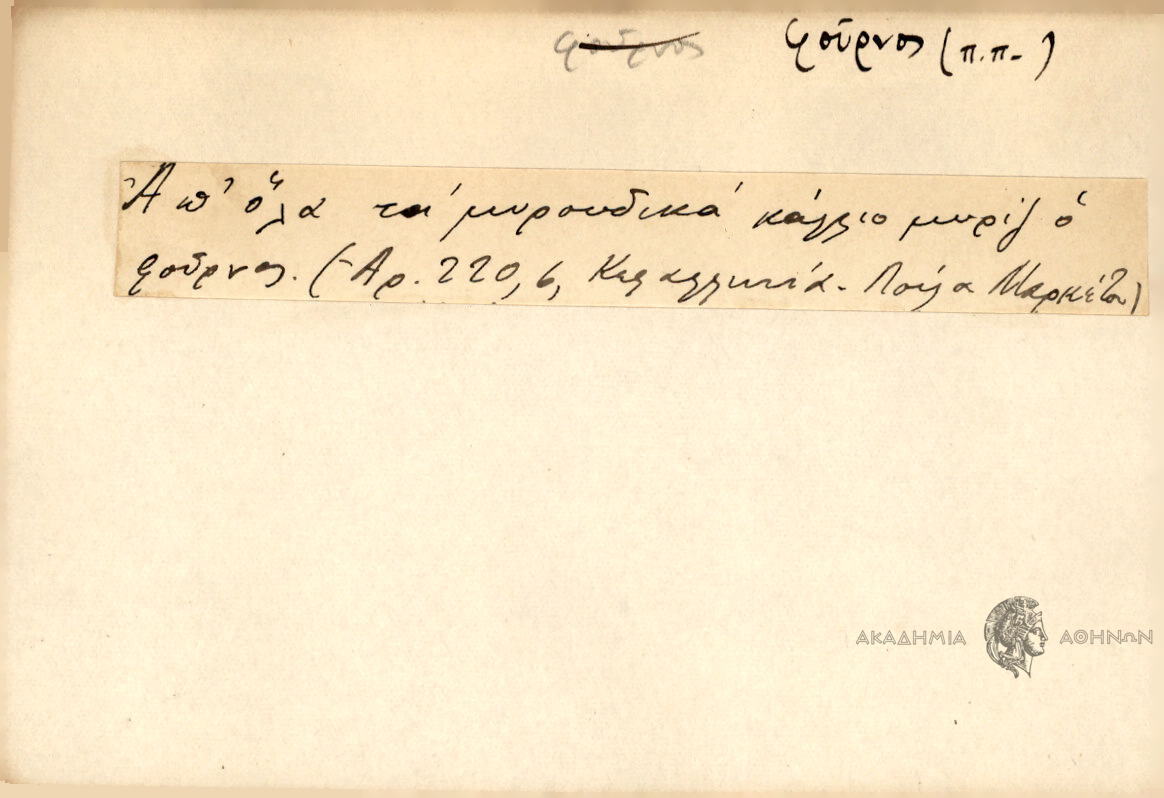 φοῦρνος φοῦρνος (π.π.)
Ἀπ' ὅλα τά μυρουδικά κάλλιο μυρίζ ὁ
φοῦρνος. (Ἀρ. 220, 6, Κεφαλληνιά. Λουΐζα Μαρκέτου)
ΑΚΑΔΗΜΙΑ ΑΘΗΝΩΝ